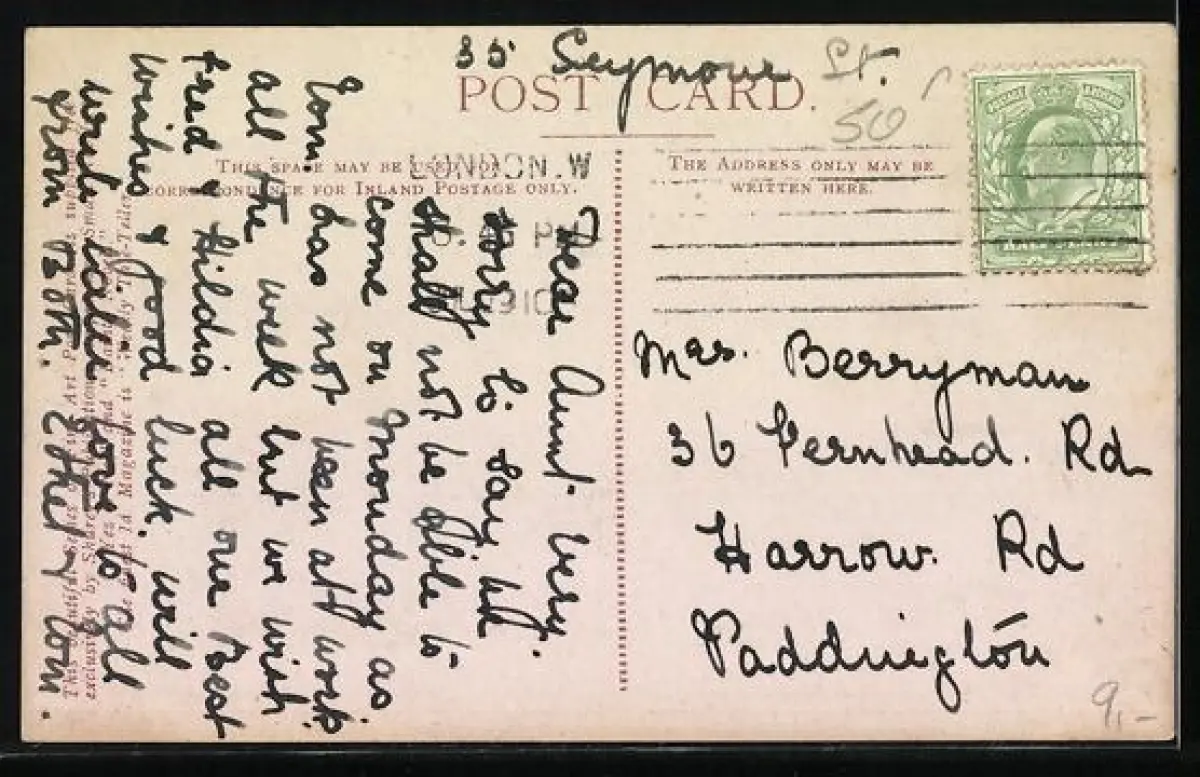 35 Seymour St.
POST CARD.
50
THIS SPACE MAY BE USED FOR
CORRESPONDENCE FOR INLAND POSTAGE ONLY.
THE ADDRESS ONLY MAY BE
WRITTEN HERE.
LONDON. W
Dear Aunt very.
sorry to say we
shall not be able to
come on Monday as
Tom has not been at work
all the week but we wish
Fred & Hilda all our Best
wishes & good luck. will
write later love to all
from Both. Ethel & Tom.
Mrs. Berryman
36 Fernhead. Rd
Harrow. Rd
Paddington
9,-